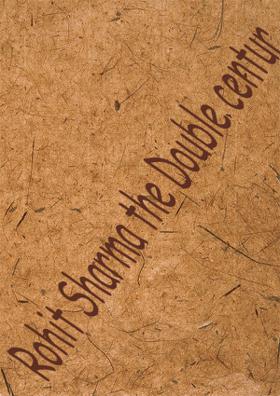 Rohit Sharma the Double centur